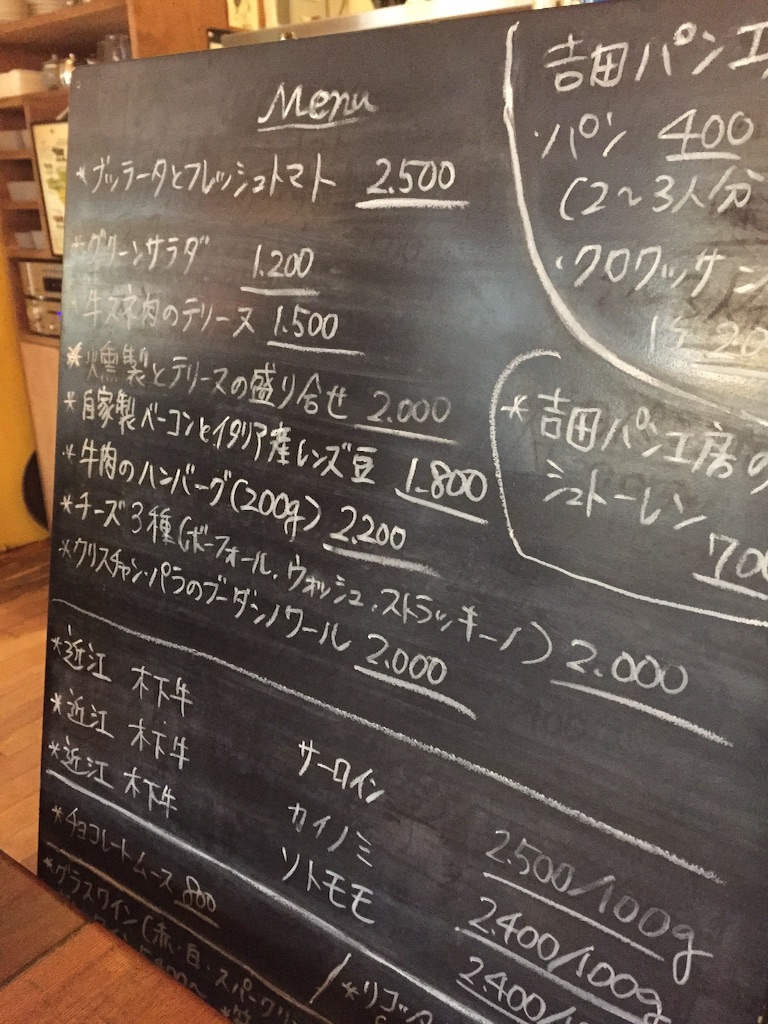 Menu
*ブッラータとフレッシュトマト 2.500
*グリーンサラダ 1.200
・牛スネ肉のテリーヌ 1.500
*燻製とテリーヌの盛り合せ 2.000
*自家製ベーコンとイタリア産レンズ豆 1.800
*牛肉のハンバーグ(200g) 2.200
*チーズ3種(ボーフォール、ウォッシュ、ストラッキーノ) 2.000
*クリスチャン・パラのブーダンノワール 2.000
*近江 木下牛 サーロイン 2.500/100g
*近江 木下牛 カイノミ 2.400/100g
*近江 木下牛 ソトモモ 2.400/1
*チョコレートムース 800
*グラスワイン(赤・白・スパークリン
*リコッタ
吉田パン工
・パン 400
(2〜3人分
・クロワッサン
*吉田パン工房の
シュトーレン
700